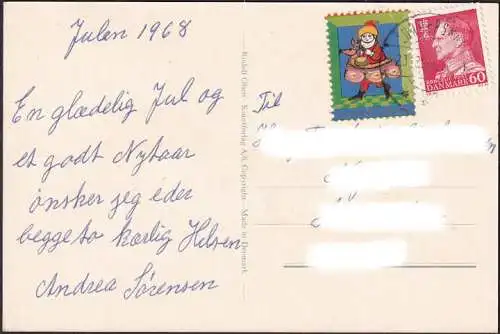 Julen 1968
En glædelig Jul og
et godt Nytaar
ønsker jeg eder
begge to kærlig Hilsen
Andrea Sørensen
Rudolf Olsens Kunstforlag A/S. Copyright - Made in Denmark
Til
DANMARK 60